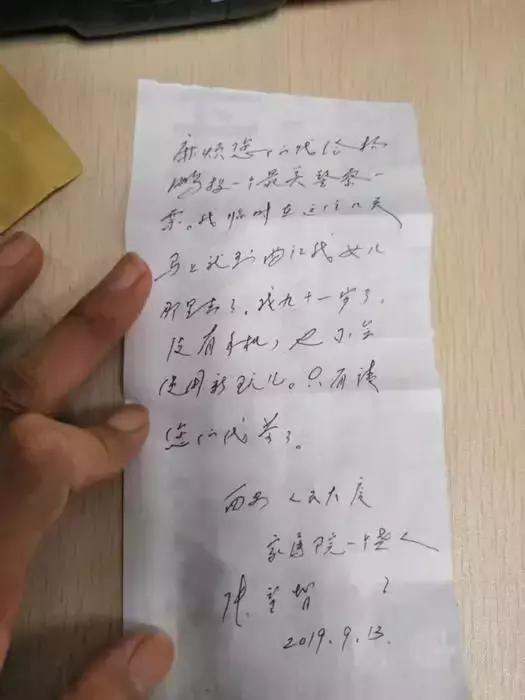 麻烦您们代给杨
鹏投一个最美警察一
票。我临时在这住几天
马上就到曲江我女儿
那里去了。我九十一岁了，
没有手机，也不会
使用新玩儿。只有请
您们代劳了。
西安 人民大厦
家属院一个老人
张望智
2019.9.13.